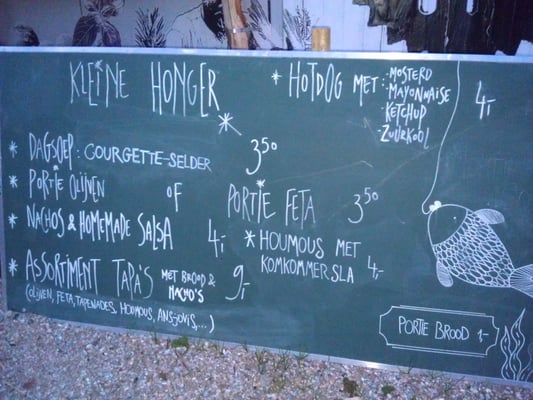 KLEINE HONGER
* HOTDOG MET: - MOSTERD
- MAYONNAISE
- KETCHUP
- ZUURKOOL
4,-
* DAGSOEP: COURGETTE-SELDER 3,50
* PORTIE OLIJVEN OF PORTIE FETA 3,50
* NACHOS & HOMEMADE SALSA 4,-
* HOUMOUS MET
KOMKOMMERSLA 4,-
* ASSORTIMENT TAPA'S MET BROOD &
NACHO'S 9,-
(OLIJVEN, FETA, TAPENADES, HOUMOUS, ANSJOVIS,...)
PORTIE BROOD 1,-